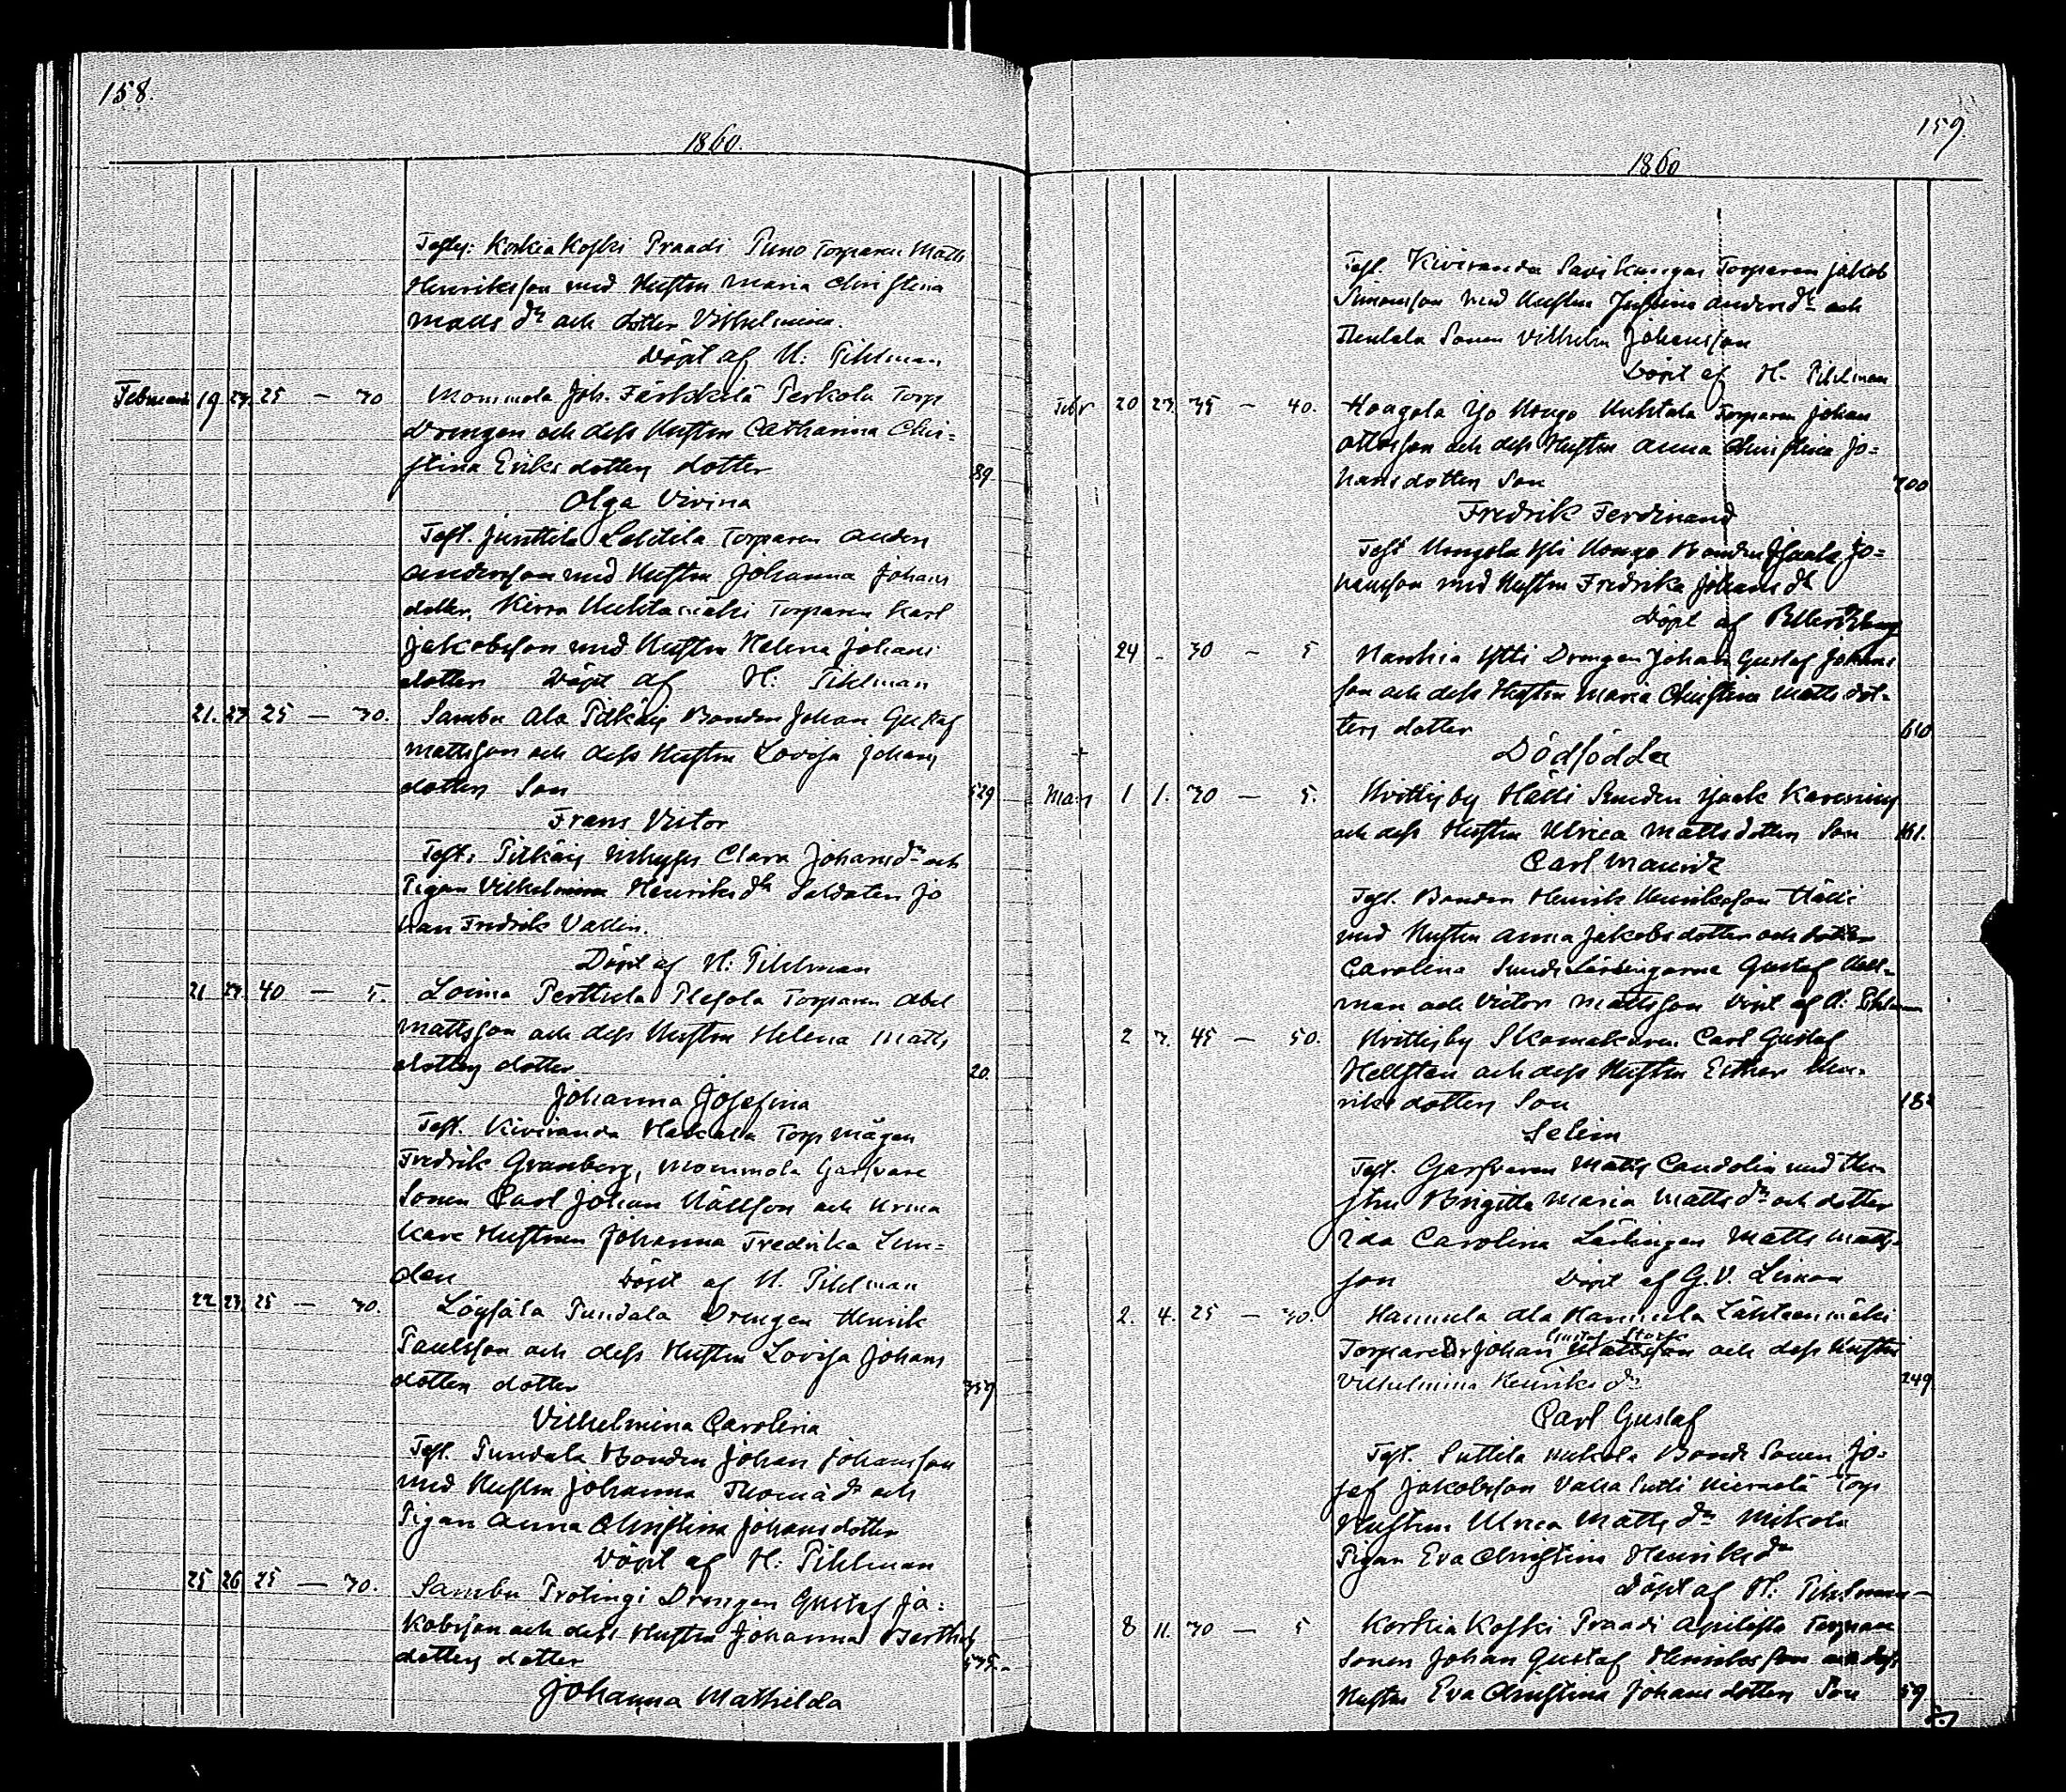 158.
1860.
Test: Korkia Koski Praadi Puno Torparen Matts
Henriksson med Hustru Maria Christina
Matts dr och dotter Vilhelmina.
Döpt af H: Pihlman
Februari 19 27. 25 — 30 Mommola Joh. Färkkilä Perkola Torp
Drengen och dess Hustru Catharina Chri=
stina Eriksdotters dotter 89.
Olga Vivina
Test. Junttila Torparen Anders
Andersson med Hustru Johanna Johans
dotter, Kirra Huhtamäki Torparen Karl
Jakobsson med Hustru Helena Johans
dotter Döpt af H: Pihlman
21. 27 25 — 30. Sambu Ala Pitkäis Bonden Johan Gustaf
Mattsson och dess Hustru Lovisa Johans
dotters Son 529
Frans Victor
Test: Pitkäis Clara Johans dr och
Pigan Vilhelmina Henriks dr Soldaten Jo
han Fredrik Vallin.
Döpt af H: Pihlman
21 27. 40 — 5. Loima Perttula Torparen Abel
Mattsson och dess Hustru Helena Matts
dotters dotter 20.
Johanna Josefina
Test. Kiviranda Hakala Torp Mågen
Fredrik Granberg, Mommola Garfvare
Sonen Carl Johan Hällfors och
Hustrun Johanna Fredrika Lin=
den Döpt af H. Pihlman
22 27. 25 — 30. Löysälä Pundala Drengen Henrik
Paulsson och dess Hustru Lovisa Johans
dotters dotter 359
Vilhelmina Carolina
Test. Pundala Bonden Johan Johansson
med Hustru Johanna Thomæ dr och
Pigan Anna Christina Johansdotter
Döpt af H: Pihlman
25 26 25 — 30. Sambu Protingi Drengen Gustaf Ja=
kobsson och dess Hustru Johanna Berthels
dotters dotter 535.
Johanna Mathilda
159.
1860
Test. Kiviranda Savikangas Torparen Jakob
Simonsson med Hustru Justina Anders dr och
Sonen Vilhelm Johansson
Döpt af H. Pihlman
Febr 20 27. 35 — 40. Hongola Yo Hongo Huhtala Torparen Johan
Ottosson och dess Hustru Anna Christina Jo=
hansdotters Son 700
Fredrik Ferdinand
Test Hongola Yli Hongo Bonden Isaak Jo=
hansson med Hustru Fredrika Johans dr
Döpt af
24 - 30 — 5 Hankia Ytti Drengen Johan Gustaf Johans
son och dess Hustru Maria Christina Matts dot=
ters dotter 610
+ Dödfödda
Mars 1 1. 30 — 5. Hvittisby Hälli Isaak
och dess Hustru Ulrica Matts dotters Son 161.
Carl Mauritz
Test. Bonden Henrik Henriksson Hälli
med Hustru Anna Jakobs dotter och dotter
Carolina Lärlingarne Gustaf Häll=
man och Victor Mattsson Döpt af H: Pihlman
2 3. 45 — 50. Hvittisby Skomakaren Carl Gustaf
Hellsten och dess Hustru Esther Hen=
riks dotters Son 182
Selim
Test. Garfvaren Matts Candolin med Hu
stru Brigitta Maria Matts dr och dotter
Ida Carolina Lärlingen Matts Matts=
son Döpt af G.V. Limon
2. 4. 25 — 30. Hannula Ala Hannula Lähteenmäki
Gustaf Stark
Torparen Johan Mattsson och dess Hustru
Vilhelmina Henriks dr 249
Carl Gustaf
Test. Suttila Mikola Bonde Sonen Jo=
sef Jakobsson Torp
Hustrun Ulrica Matts dr Mikola
Pigan Eva Christina Henriks dr
Döpt af H: Pihlman
8 11. 30 — 5 Korkia Koski Praadi Torpare
Sonen Johan Gustaf Henriksson och dess
Hustru Eva Christina Johansdotters Son 59